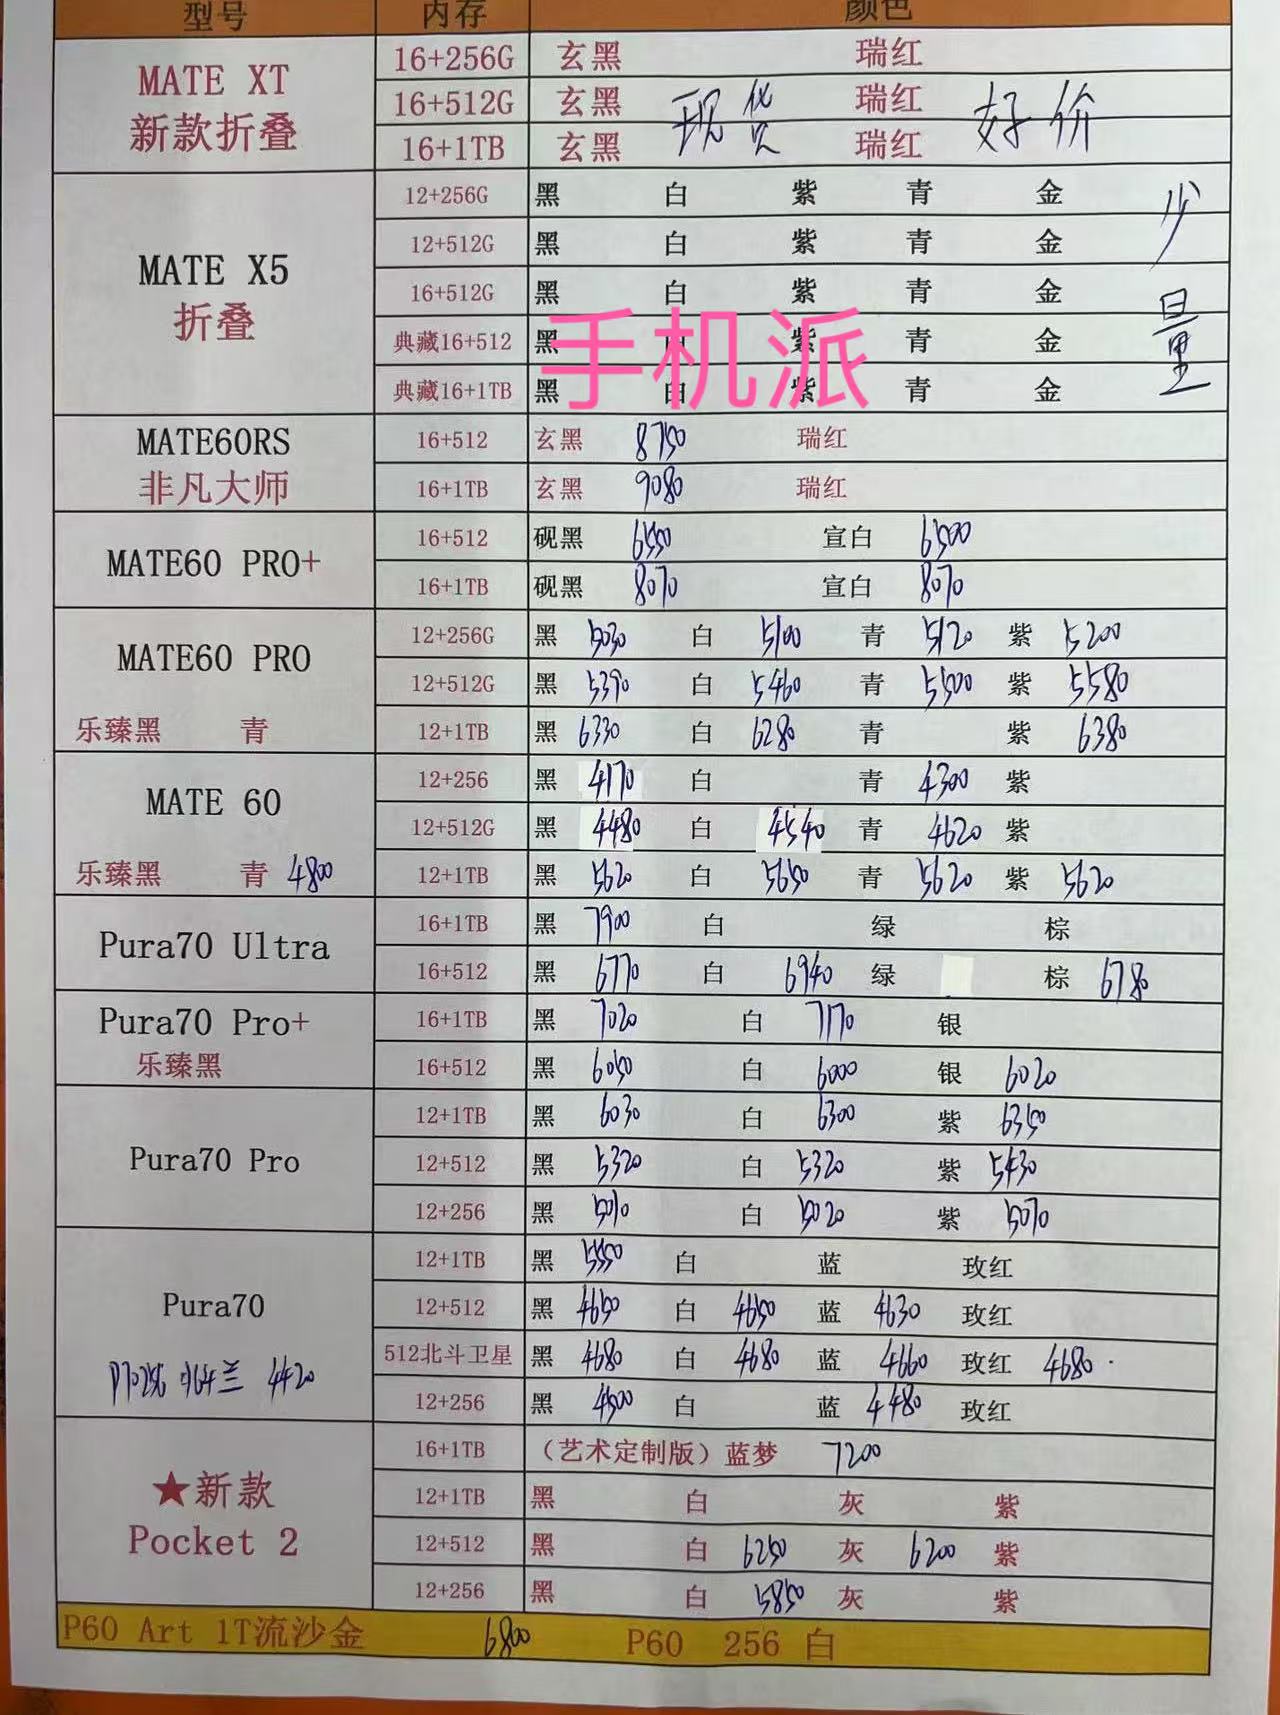 型号 内存 颜色
MATE XT 新款折叠
16+256G 玄黑 瑞红
16+512G 玄黑 现货 瑞红 好价
16+1TB 玄黑 瑞红
MATE X5 折叠 少量
12+256G 黑 白 紫 青 金
12+512G 黑 白 紫 青 金
16+512G 黑 白 紫 青 金
手机派
典藏16+512 黑 白 紫 青 金
典藏16+1TB 黑 白 紫 青 金
MATE60RS 非凡大师
16+512 玄黑 8750 瑞红
16+1TB 玄黑 9080 瑞红
MATE60 PRO+
16+512 砚黑 6550 宣白 6500
16+1TB 砚黑 8070 宣白 8070
MATE60 PRO
12+256G 黑 5030 白 5100 青 5120 紫 5200
12+512G 黑 5390 白 5460 青 5500 紫 5580
乐臻黑 青
12+1TB 黑 6330 白 6280 青 紫 6380
MATE 60
12+256 黑 4170 白 青 4300 紫
12+512G 黑 4480 白 4540 青 4620 紫
乐臻黑 青 4800
12+1TB 黑 5620 白 5650 青 5620 紫 5620
Pura70 Ultra
16+1TB 黑 7900 白 绿 棕
16+512 黑 6770 白 6940 绿 棕 6780
Pura70 Pro+
乐臻黑
16+1TB 黑 7020 白 7170 银
16+512 黑 6050 白 6000 银 6020
Pura70 Pro
12+1TB 黑 6030 白 6300 紫 6350
12+512 黑 5320 白 5320 紫 5430
12+256 黑 5010 白 5020 紫 5070
Pura70
12+1TB 黑 5550 白 蓝 玫红
12+512 黑 4650 白 4650 蓝 4630 玫红
512北斗卫星 黑 4680 白 4680 蓝 4660 玫红 4680
4420
12+256 黑 4500 白 蓝 4480 玫红
★新款
Pocket 2
16+1TB （艺术定制版）蓝梦 7200
12+1TB 黑 白 灰 紫
12+512 黑 白 6250 灰 6200 紫
12+256 黑 白 5850 灰 紫
P60 Art 1T流沙金 6800 P60 256 白